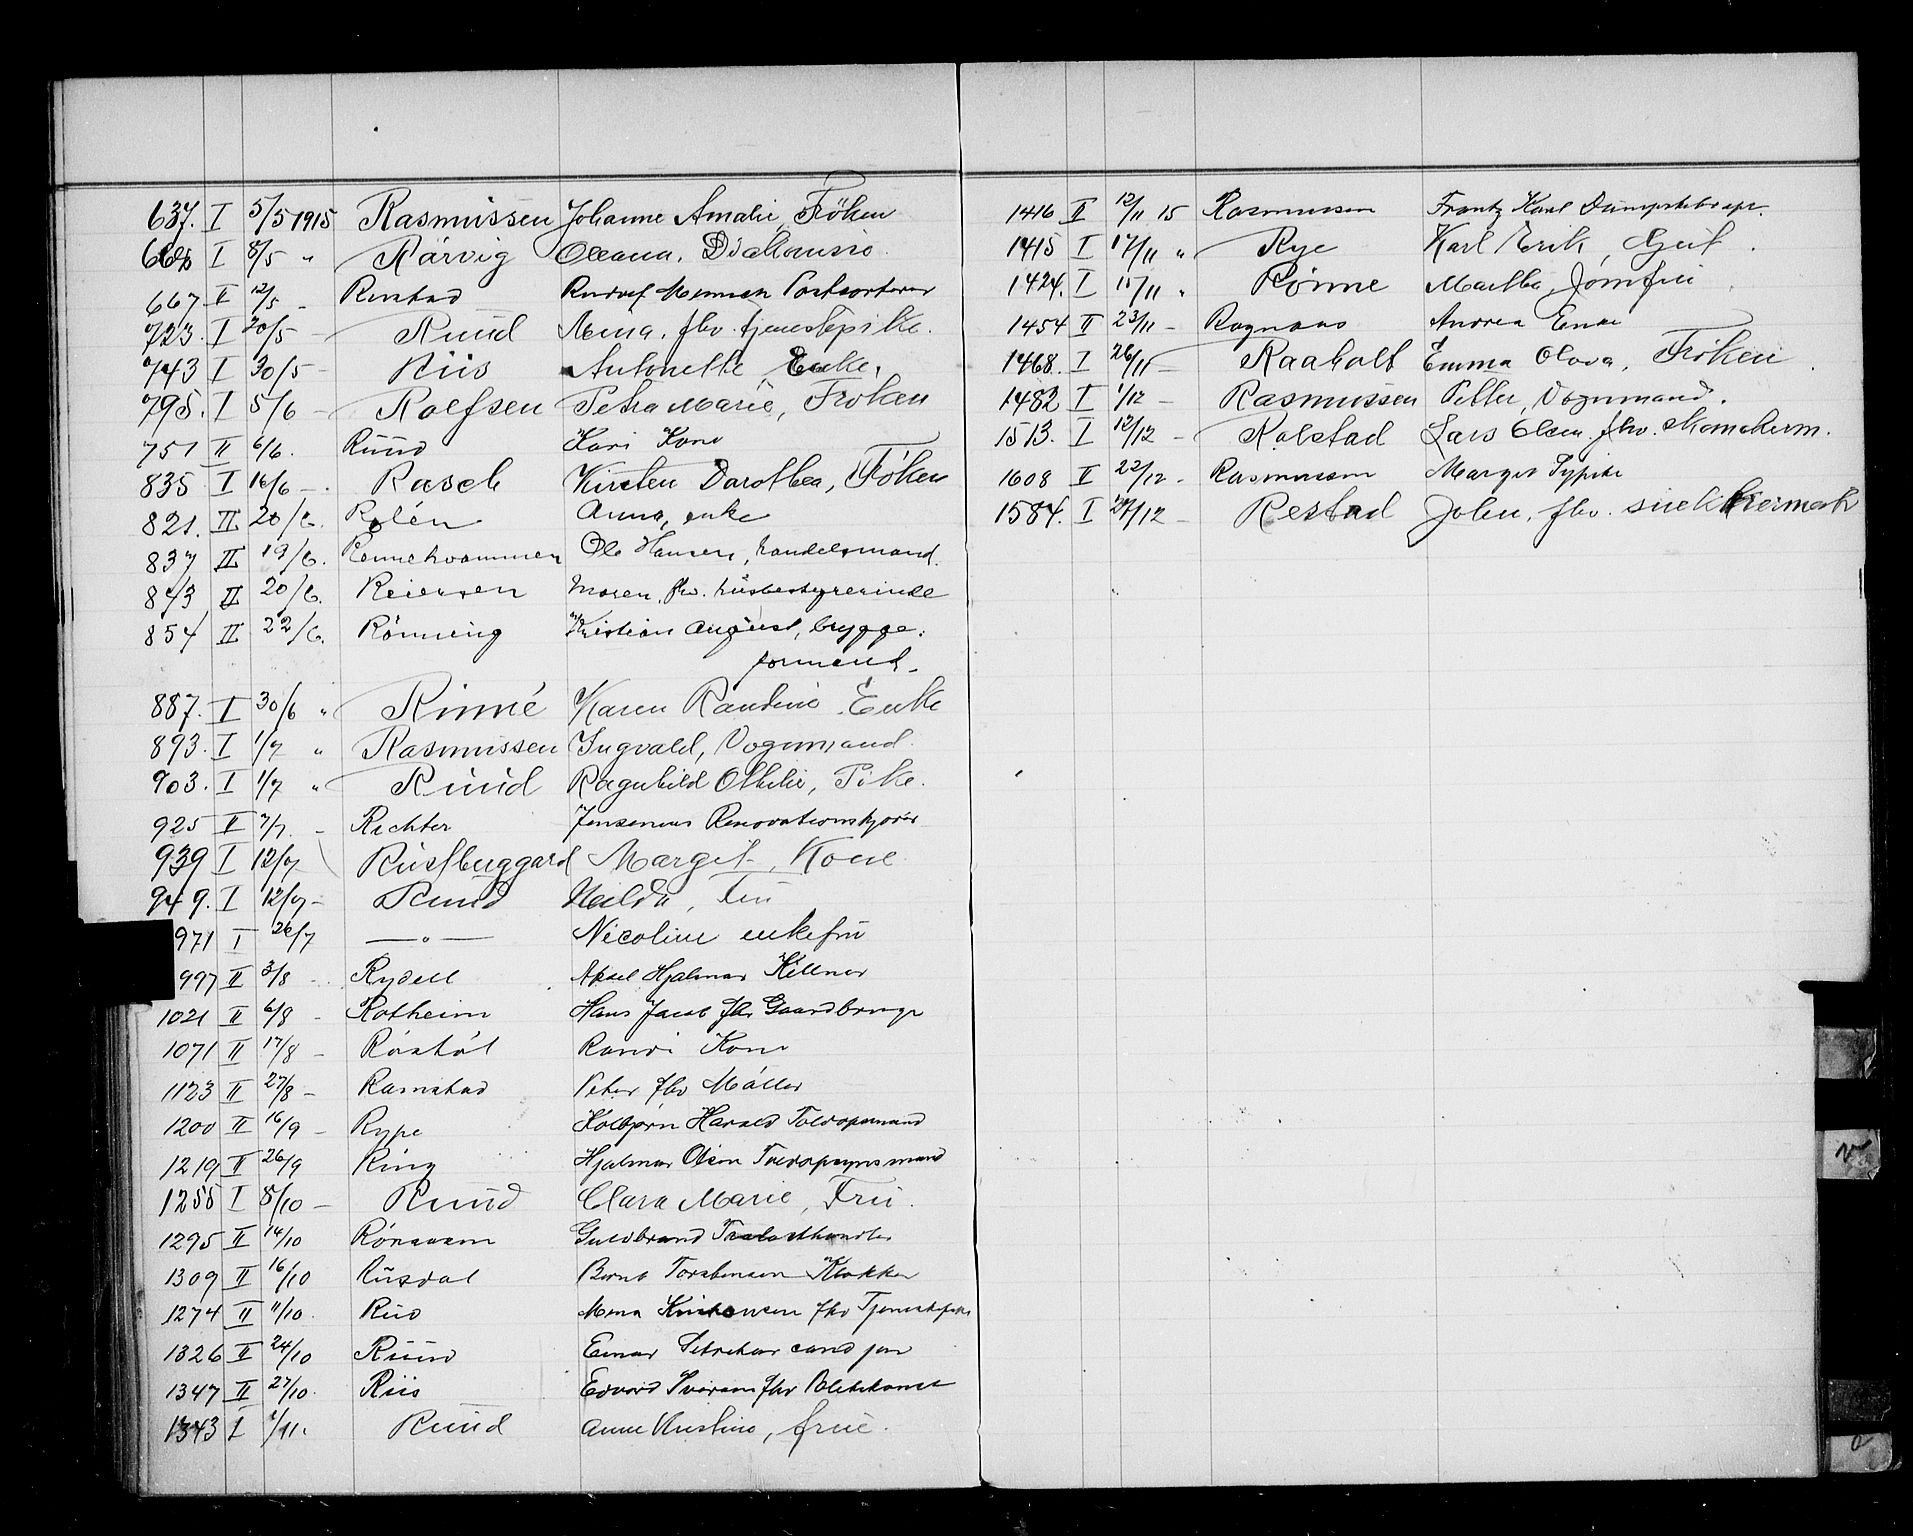 637. I 5/5 1915 Rasmussen Johanne Amalie, Fröken
I 8/5 " Rårvig Oleana, Diakonisse
667 II 12/5 - Rustad Rudolf Postsorterer
723. I 20/5 - Ruud fhv. tjenestepike.
743 I 30/5 - Riis Antonette, Enke.
795. I 5/6 - Rolfsen Petra Marie, Fröken
751 II 6/6. Ruud Kari Kone
835 I 16/6 -. Rasch Kirsten Dorothea, Fröken
821. II 20/6. Rolén Anna, enke
837 II 19/6. Rennehvammen Ole Hansen, handelsmand.
843 II 20/6. Reiersen Maren, fhv. husbestyrerinde
854 II 22/6. Rönning Kristian August, brygge-
formand.
887. I 30/6 " Rinné Karen Randine Enke
893. I 1/7 " Rasmussen Ingvald, Vognmand.
903. I 1/7 " Ruud Ragnhild Othilie, Pike.
925 II 7/7. - Richter Renovationskjører
939 I 12/7 Rustbuggard Margit, Kone
949. I 12/7 - Ruud Hilda, Fru
971 I 26/7 — " — Nicoline enkefru
997 II 3/8 - Rydell Aksel Hjalmar Kellner
1021 II 6/8 - Rotheim Hans Jacob fhv Gaardbruge
1071 II 17/8 - Röstöl Randi Kone
1123 II 27/8 - Ramstad Peter fhv Möller
1200 II 16/9 - Rype Kolbjørn Harald Toldopsmand
1219 II 26/9 Ring Hjalmar Olsen Toldopsynsmand
1255 I 8/10 - Ruud Clara Marie, Fru.
1295 II 14/10 Rönsveen Guldbrand Trælasthandler
1309 II 16/10 Rusdal Bernt Torstensen Klokker
1274 II 11/10. Rud fhv Tjenestepike
1326 II 24/10 Ruud Einar cand jur
1347 II 27/10. Riis Edvard Iversen fhv Politikonst
1343 I /11. Ruud Anne Kristine, frue.
1416 II 12/11 15 Rasmussen Frantz Karl Dampskibsexp.
1415 I 17/11 " Rye Karl Erik, Gut.
1424. I 15/11 " Rönne Martha, Jomfru
1454 II 23/11 - Ragnaas Andrea Enke
1468. I 26/11 - Raaholt Emma Olava, Fröken
1482 I 1/12 - Rasmussen Petter, Vognmand.
1513. I 12/12 - Rolstad Lars Olsen. fhv. skomakerm.
1608 II 22/12 - Rasmussen Margit Sypike
1584. I 27/12 - Restad Johu. fhv. snekkermest